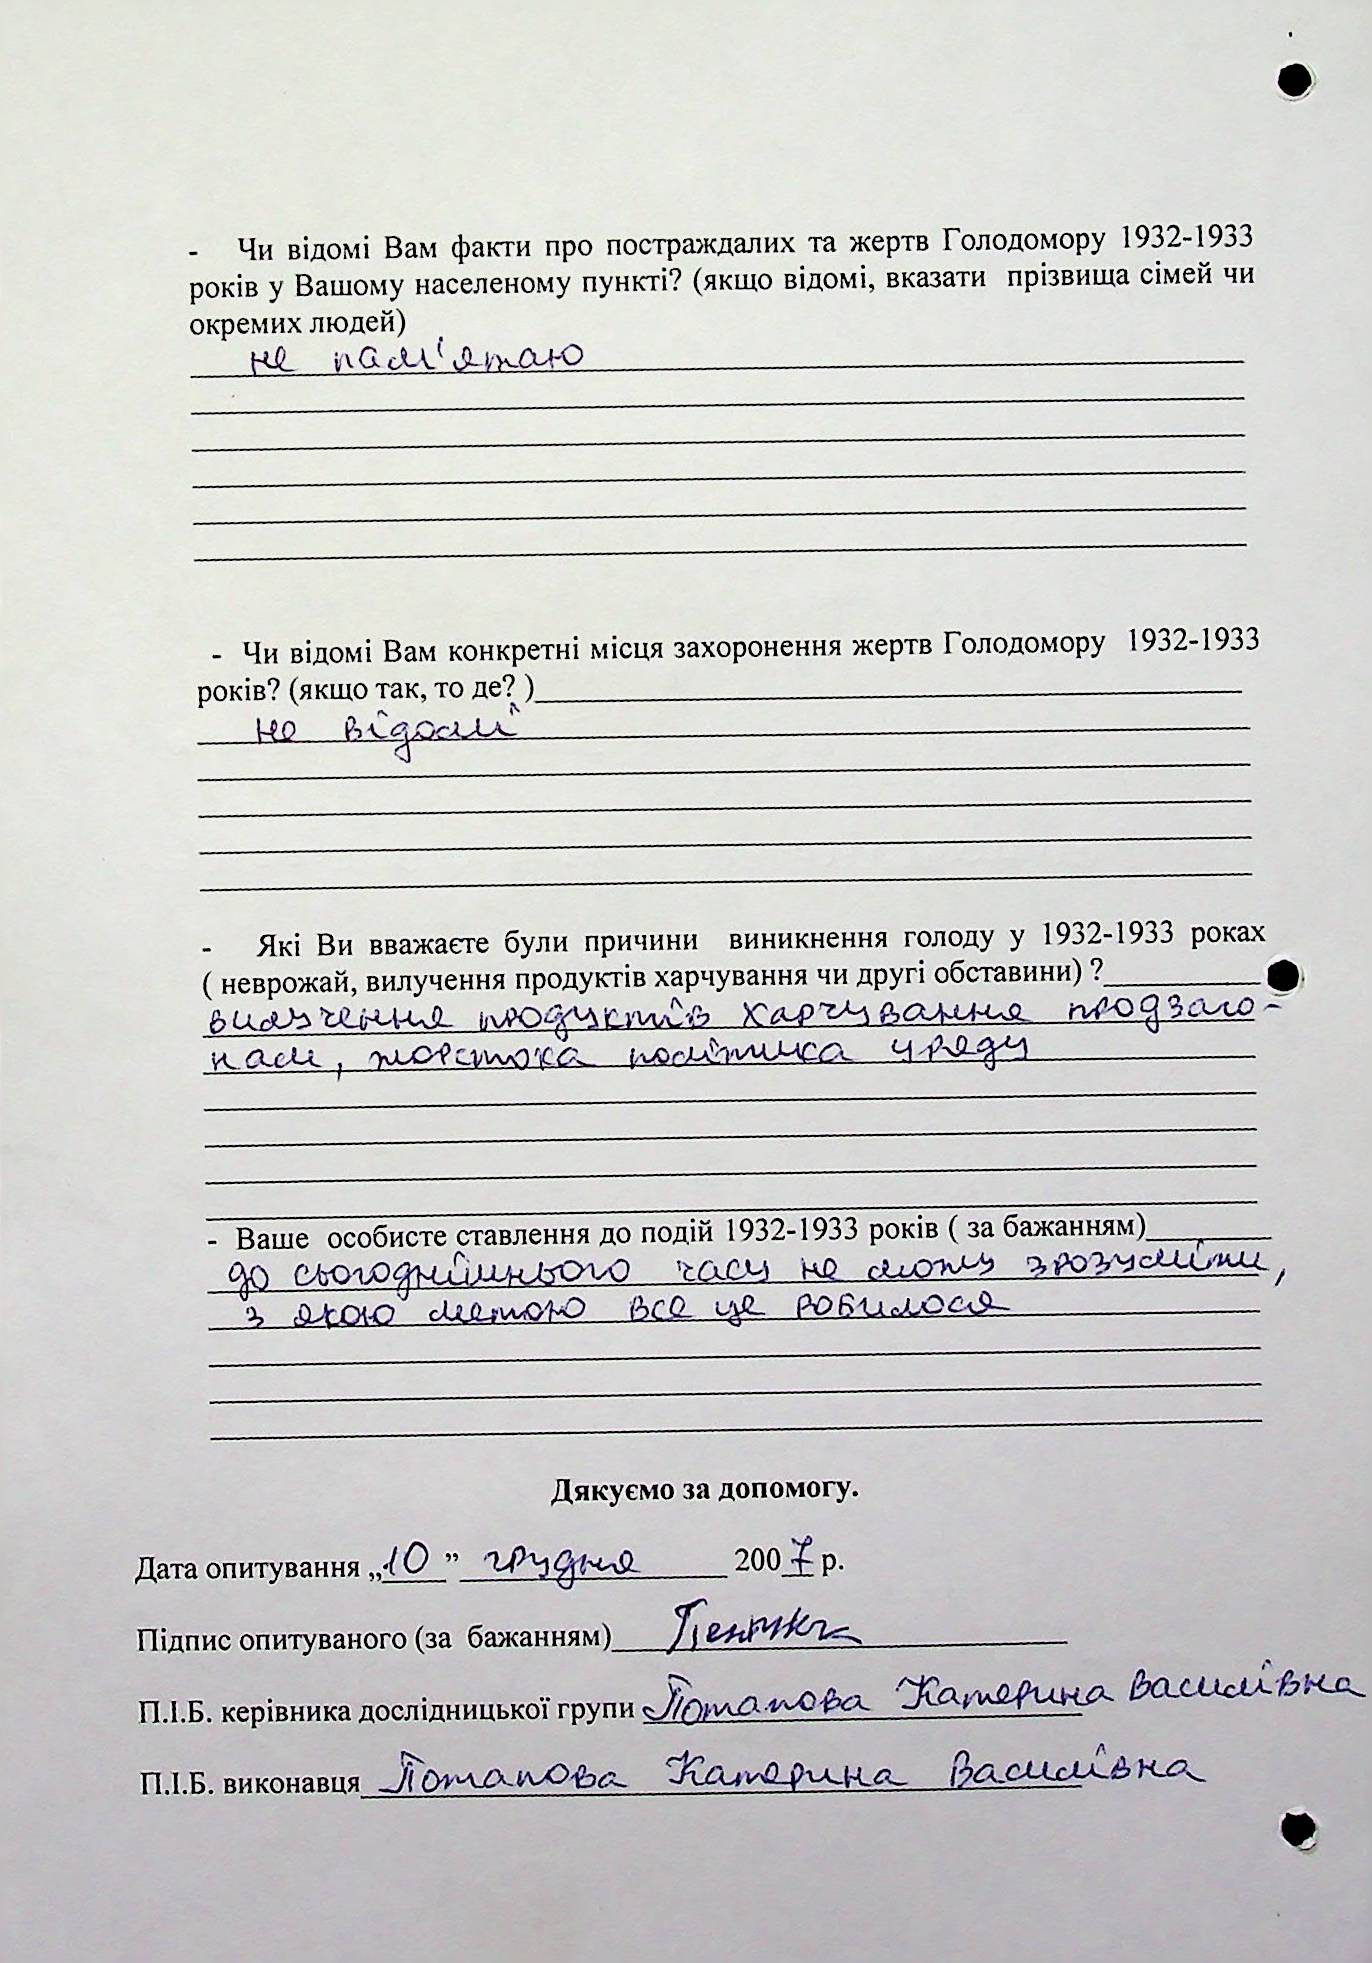 - Чи відомі Вам факти про постраждалих та жертв Голодомору 1932-1933
років у Вашому населеному пункті? (якщо відомі, вказати прізвища сімей чи
окремих людей)
не пам'ятаю
- Чи відомі Вам конкретні місця захоронення жертв Голодомору 1932-1933
років? (якщо так, то де? )
не відомі
- Які Ви вважаєте були причини виникнення голоду у 1932-1933 роках
( неврожай, вилучення продуктів харчування чи другі обставини) ?
вилучення продуктів харчування продзаго-
нам, жорстока політика уряду
- Ваше особисте ставлення до подій 1932-1933 років ( за бажанням)
до сьогоднішнього часу не можу зрозуміти,
з якою метою все це робилося
Дякуємо за допомогу.
Дата опитування „10” грудня 2007 р.
Підпис опитуваного (за бажанням)
П.І.Б. керівника дослідницької групи Потапова Катерина Василівна
П.І.Б. виконавця Потапова Катерина Василівна